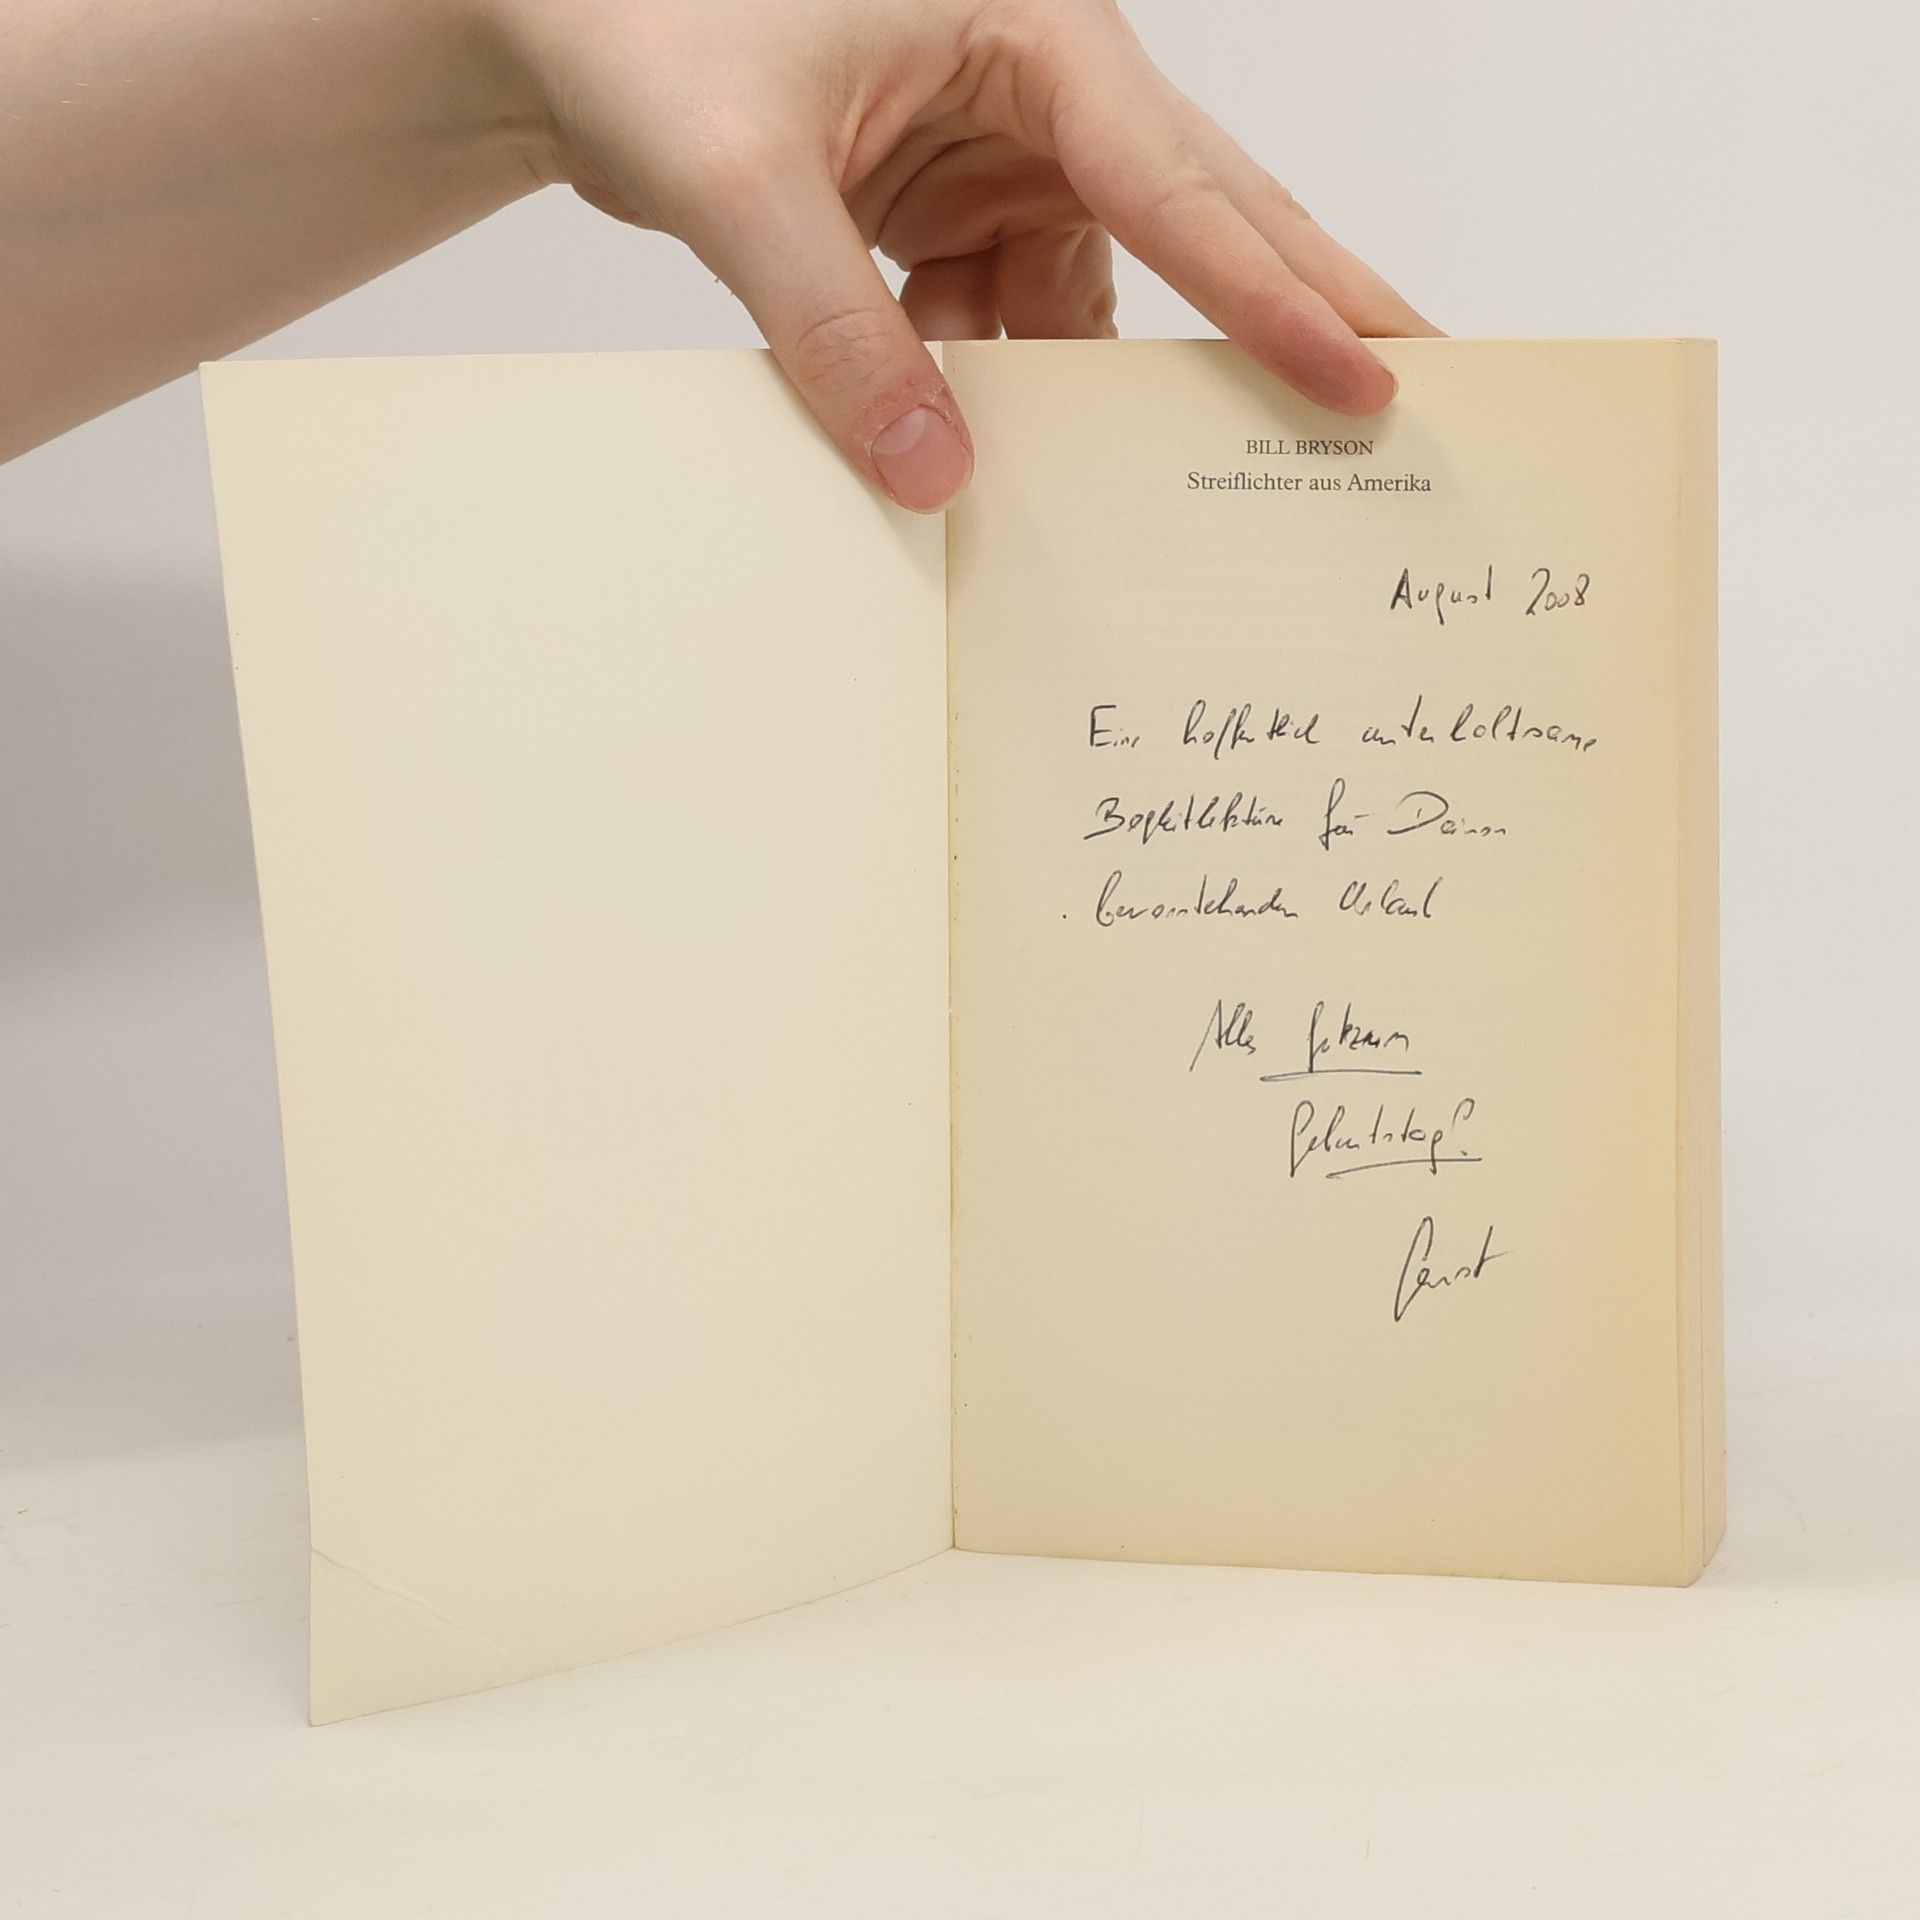 BILL BRYSON
Streiflichter aus Amerika
August 2008
Eine hoffentlich unterhaltsame
Begleitlektüre für Deinen
bevorstehenden Urlaub
Alles Gute zum
Geburtstag!